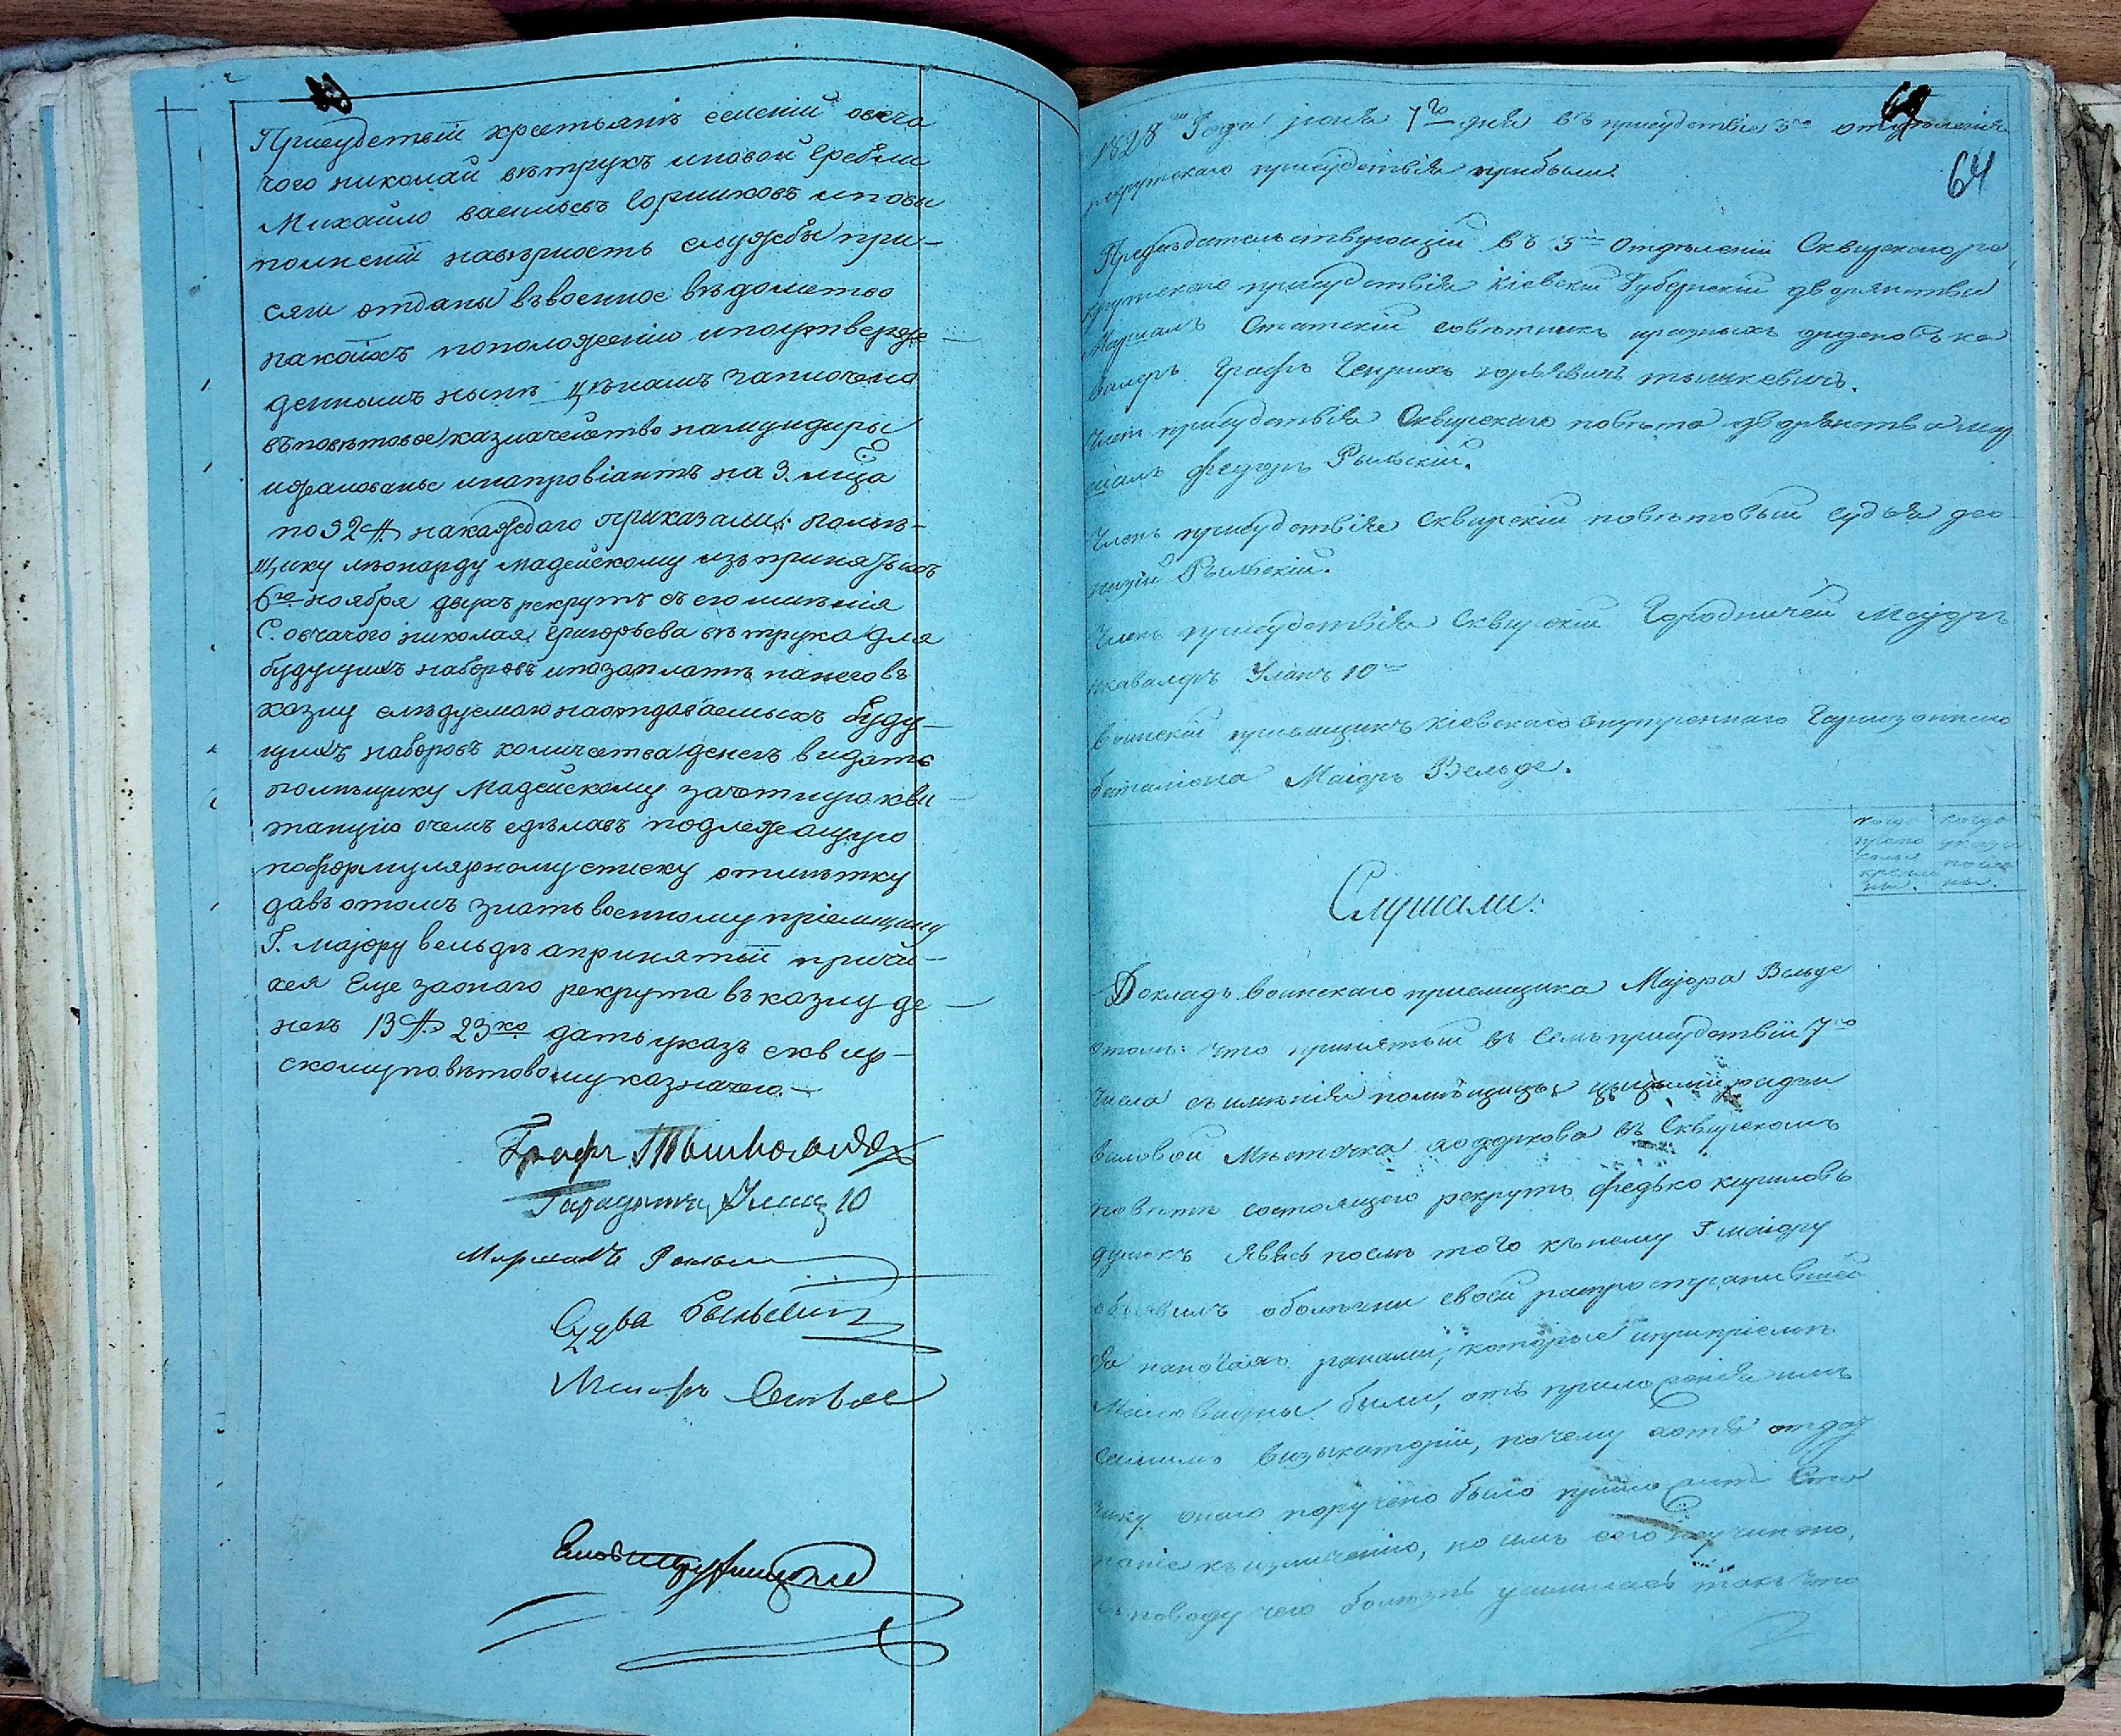 Присудствій крестьянъ селеній овеча
чого николай вътрукъ иповой Гребли
Михайло васильевъ Горшковъ ипови
полненій наверность службы при-
сяги отданы въвоенное въдомство
накоихъ поположенію ипоутверж-
деннымъ нынъ цънамъ заплочено
въповътовое казначейство намундиры
ижалованье инапровіантъ на 3. мца
по 32 накаждаго приказали: помъ-
щику леонарду мадейскому изъпринятыхъ
6го ноября двухъ рекрутъ съ его имънія
С. овчачого николая Григорьева вътрука для
будущихъ наборовъ ипозаплатъ панего въ
казну слъдуемаго наотдаваемыхъ буду-
щихъ наборовъ количества денегъ видать
помъщику Мадейскому зачотную кви-
танцію очемъ сдълавъ подлежащую
поформулярному списку отмътку
давъ отомъ знать военному пріемщику
Г. маіору вельдъ апринятый причи-
хея Еще заонаго рекрута въ казну де-
некъ 13 23 ко дать указъ сквир-
скому повътовому казначею.
Графъ Тышкевичъ
Городничій Уланъ 10
Маршалъ Рыльскій
Судья Рыльскій
Маіоръ Вельде
64
1828го Года ноя 7го дня въ присудствіе 3го отдъленія
рекрутскаго присудствія прибыли.
Предсъдательствующій въ 3мъ Отдъленіи Сквирскаго ре
крутскаго присудствія Кіевскій Губернскій дворянства
Маршалъ Статскій совътникъ иразныхъ орденовъ ка
валеръ Графъ Генрихъ юрьевичъ тышкевичъ.
Членъ присудствія Сквирскаго повъта дворянства мар
шалъ федоръ Рыльскій.
Членъ присудствія Сквирскій повътовый судья део
низій Рыльскій.
Членъ присудствія Сквирскій Городничей Маіоръ
икавалеръ Уланъ 10й
Воинскій приемщикъ Кіевскаго внутренняго Гарнизоннаго
баталіона Маіоръ Вельде.
Слушали:
Докладъ воинскаго приемщика Маіора Вельде
отомъ: что принятый въ семъ присудствіи 7го
числа съ имънія помъщицы радзи
виловой Мъстечка ходоркова въ Сквирскомъ
повътъ состоящаго рекрутъ федько кириловъ
думокъ явясь послъ того къ нему Г маіору
объявилъ оболъзни своей распространившей
ся наногахъ ранами, которые ипри пріемъ
Маловидны были, отъ приложенія имъ
самимъ визыкаторіи, почему хотя отдат
чику онаго поручено было приложить Ста
раніе къ излъченію, но имъ сего неучинено,
споводу чего болъзнь усилилась такъ что